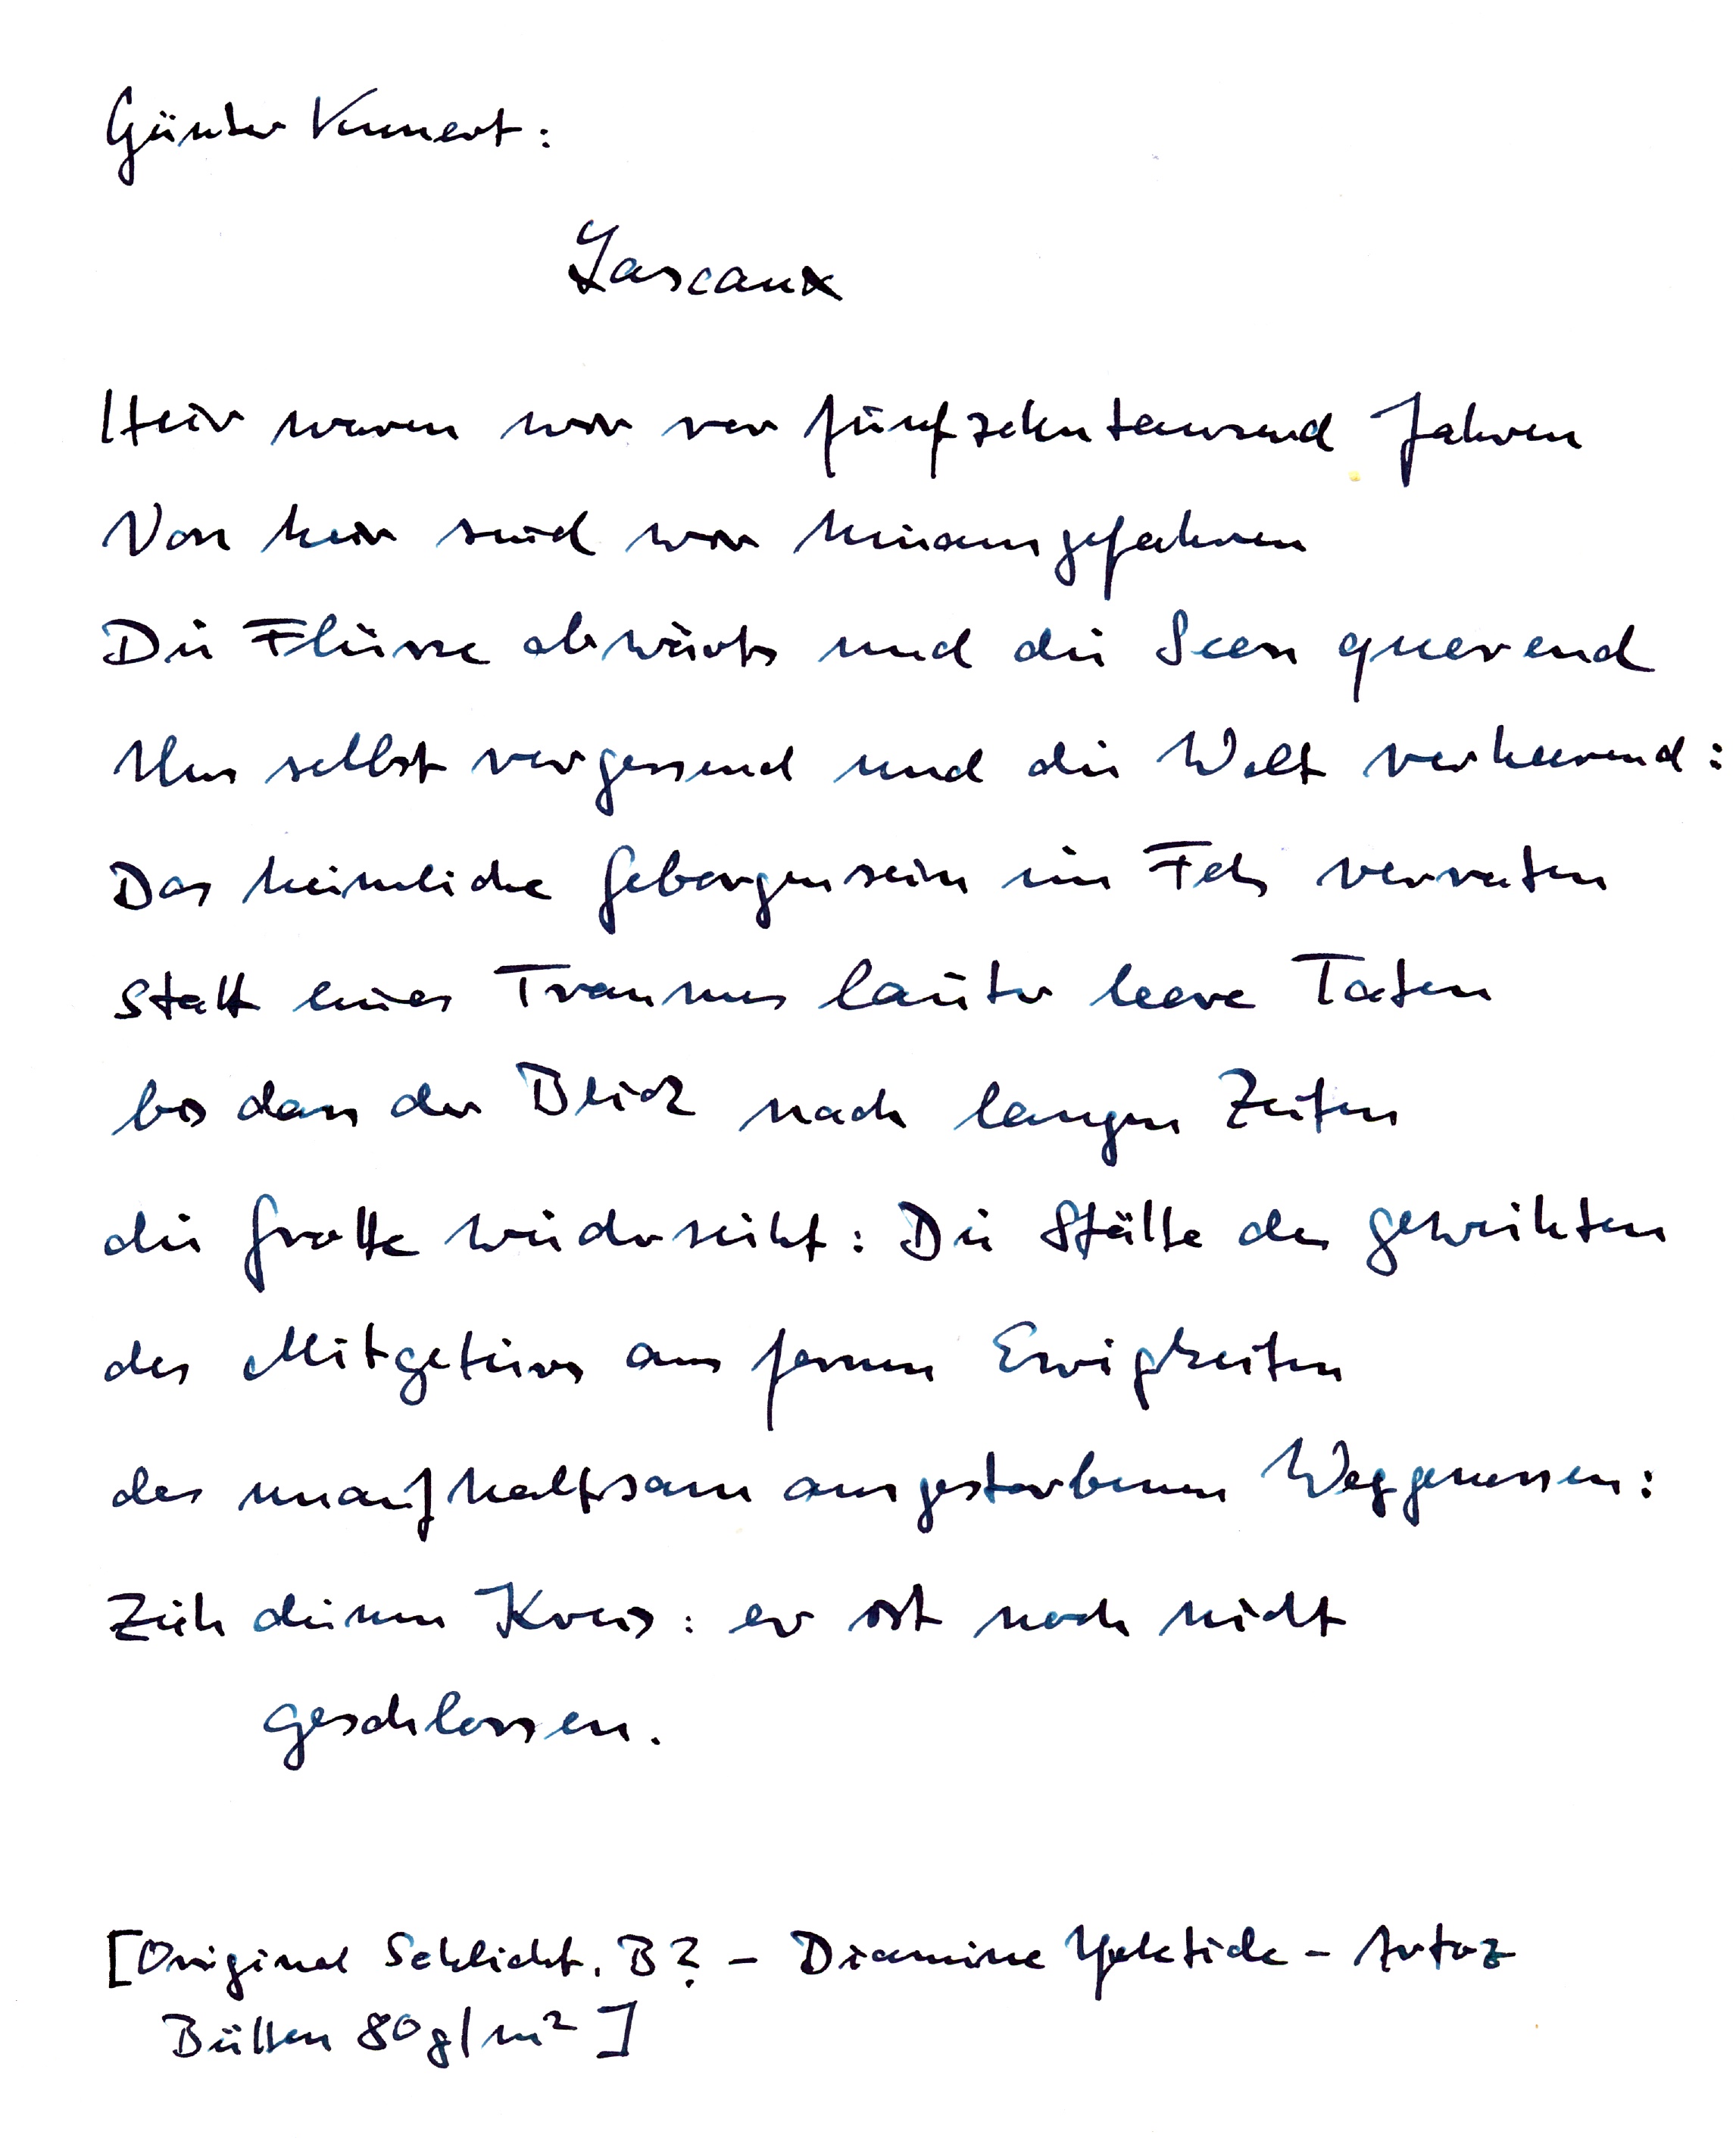 Günter Kunert:
Lascaux
Hier waren wir vor fünfzehntausend Jahren
Von hier sind wir hinausgefahren
Die Flüsse abwärts und die Seen querend
Uns selbst vergessend und die Welt verheerend:
Das heimliche Geborgensein im Fels verraten
Statt eines Traumes lauter leere Taten
bis dass der Blick nach langen Zeiten
die Grotte wiedersieht: Die Stätte des geweihten
des Mitgetiers aus fernen Ewigkeiten
des unaufhaltsam ausgestorbenen Weggenossen:
Zieh deinen Kreis: er ist noch nicht
geschlossen.
[Original Schlicht. B? – Diamine – Artoz
Bütten 80g/m²]